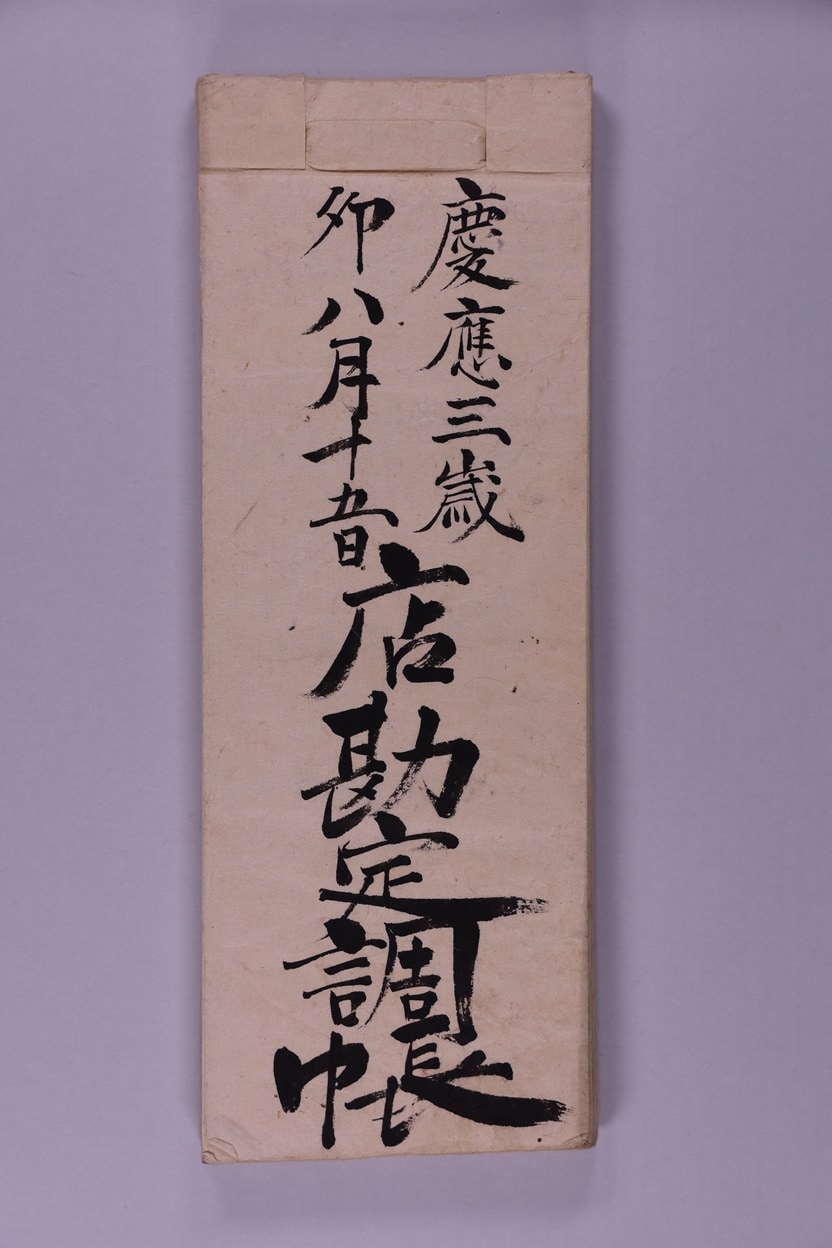 慶應三歳
卯八月十五日
店勘定調帳